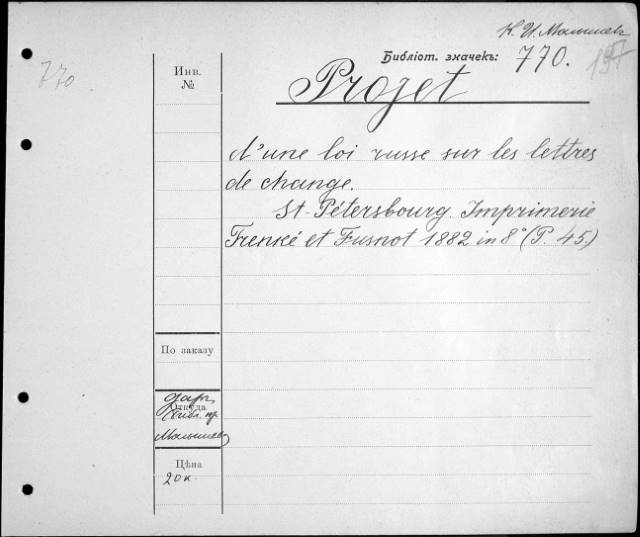 К. И. Малышев
Библіот. значекъ: 770.
770
Инв.
№
Projet
d'une loi russe sur les lettres
de change.
St-Pétersbourg. Imprimerie
Trenké et Fusnot 1882 in 8° (P. 45.)
По заказу
даръ
Откуда
Малышев
Цѣна
20 к.